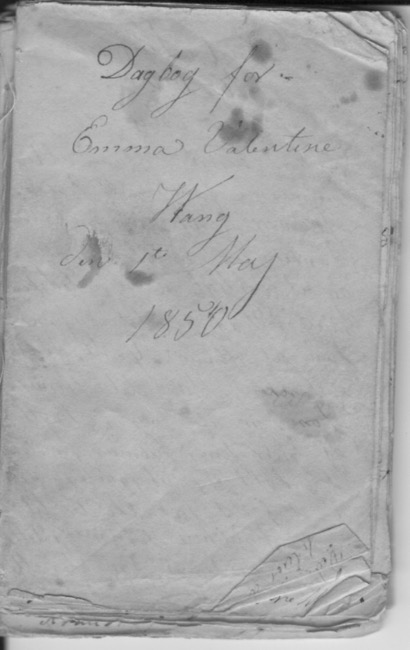 Dagbog for
Emma Valentine
Wang
den 1te Maj
1850